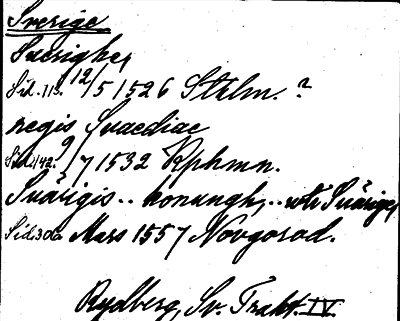 Sverige
Suerighe,
Sid. 113. 12/5 1526 Sthlm. ?
regis Suaediae
Sid. 142. 9/7 1532 Kphmn.
Svärigis .. konungh, .. uti Svärige,
Sid. 306. Mars 1557 Novgorod.
Rydberg, Sv. Trakt. IV.